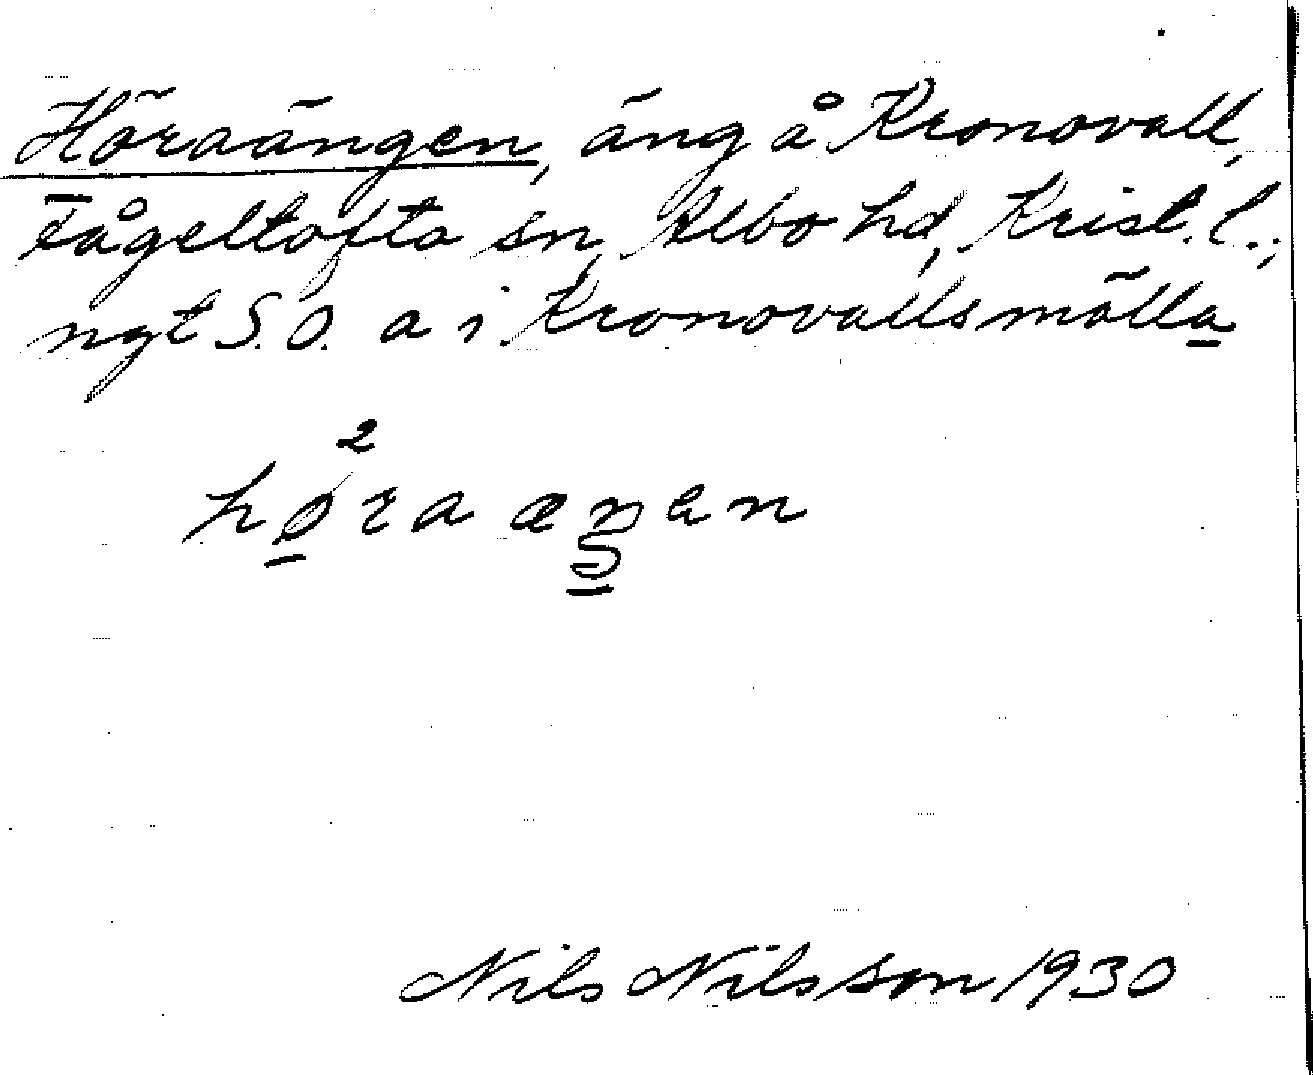 Höraängen, äng å Kronovall,
Fågeltofta sn, Albo hd, Krist. l.;
ngt S.O. a i Kronovallsmölla
2
høra æŋen
Nils Nilsson 1930